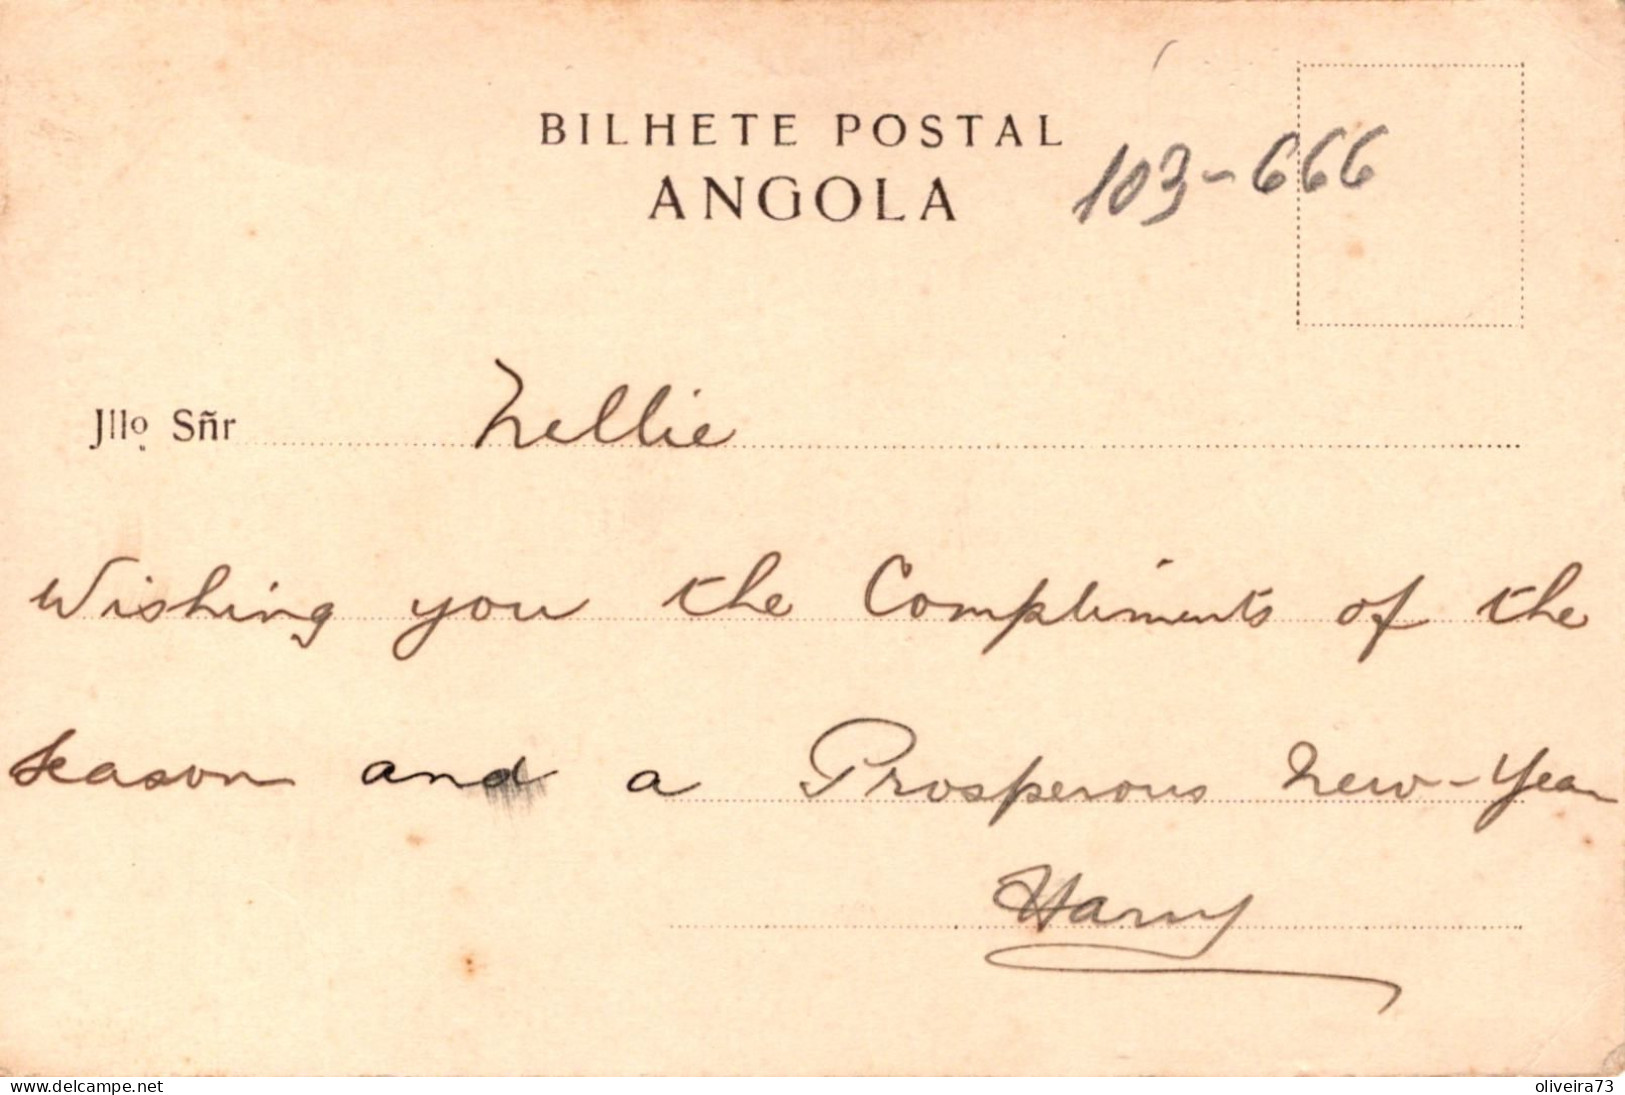 BILHETE POSTAL
ANGOLA
103-666
Jllº Sñr Nellie
Wishing you the Compliments of the
season and a Prosperous New-Year
Harry
www.delcampe.net
oliveira73